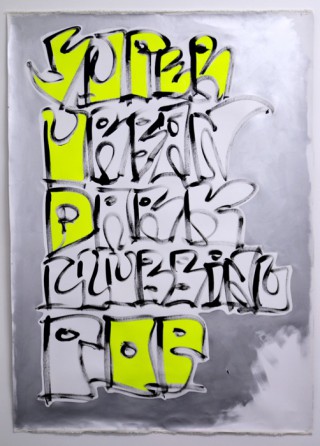 SUPER
URBAN
DARK
CLUBBING
POP